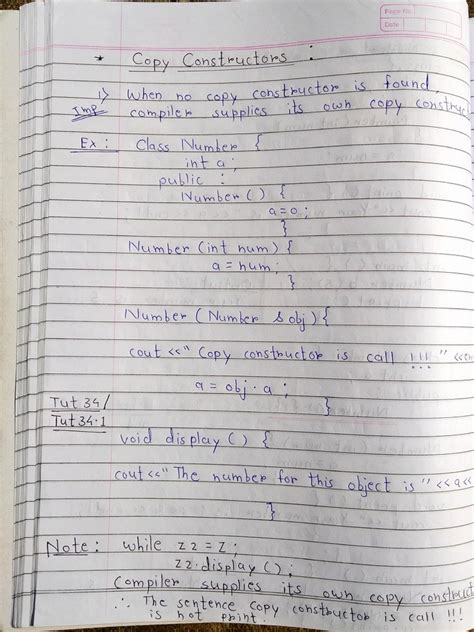 Page No.
Date
* Copy Constructors :
1) When no copy constructor is found,
Imp compiler supplies its own copy construc
Ex : Class Number {
int a ;
public :
Number ( ) {
a = 0 ;
}
Number (int num) {
a = num ;
}
Number ( Number & obj ) {
cout << " Copy constructor is call !!! " <<en
a = obj . a ;
Tut 34 / }
Tut 34.1
void display ( ) {
cout << " The number for this object is " << a <<
}
Note : while z2 = z ;
z2 . display ( ) ;
Compiler supplies its own copy construct
∴ The sentence copy constructor is call !!!
is not print.